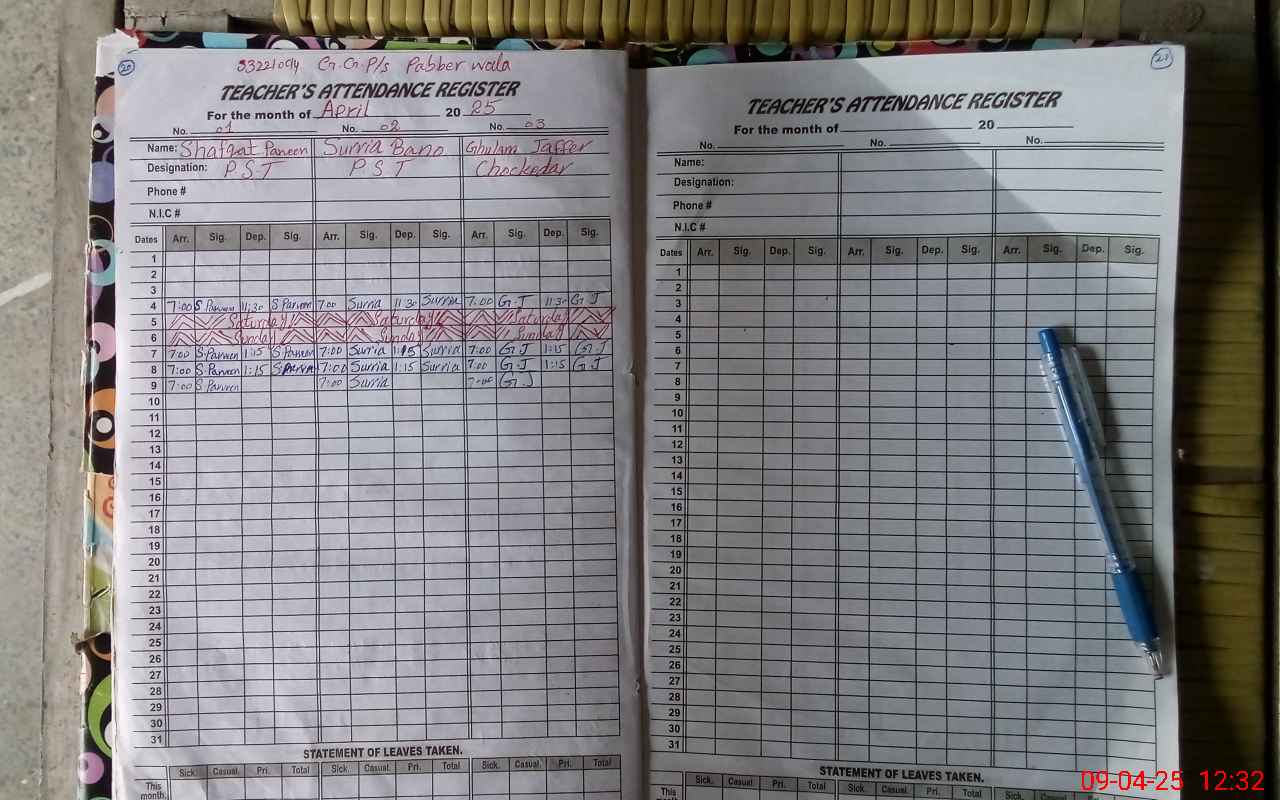 20
33221094 G.G.P/s Pabber wala
TEACHER'S ATTENDANCE REGISTER
For the month of April 20 25
No. 01 No. 02 No. 03
Name: Shafqat Parveen Surria Bano Ghulam Jaffer
Designation: P.S.T P.S.T Chockedar
Phone #
N.I.C #
Dates Arr. Sig. Dep. Sig. Arr. Sig. Dep. Sig. Arr. Sig. Dep. Sig.
1
2
3
4 7:00 S Parveen 11:30 S Parveen 7:00 Surria 11:30 Surria 7:00 G.J 11:30 G J
5 Saturday Saturday Saturday
6 Sunday Sunday Sunday
7 7:00 S.Parveen 1:15 S.Parveen 7:00 Surria 1:15 Surria 7:00 G.J 1:15 G.J
8 7:00 S.Parveen 1:15 S.Parveen 7:00 Surria 1:15 Surria 7:00 G.J 1:15 G.J
9 7:00 S.Parveen 7:00 Surria 7:00 G.J
10
11
12
13
14
15
16
17
18
19
20
21
22
23
24
25
26
27
28
29
30
31
STATEMENT OF LEAVES TAKEN.
Sick. Casual. Pri. Total Sick. Casual. Pri. Total Sick. Casual. Pri. Total
This month.
21
TEACHER'S ATTENDANCE REGISTER
For the month of 20
No. No. No.
Name:
Designation:
Phone #
N.I.C #
Dates Arr. Sig. Dep. Sig. Arr. Sig. Dep. Sig. Arr. Sig. Dep. Sig.
1
2
3
4
5
6
7
8
9
10
11
12
13
14
15
16
17
18
19
20
21
22
23
24
25
26
27
28
29
30
31
STATEMENT OF LEAVES TAKEN.
Sick. Casual. Pri. Total Sick. Casual. Pri. Total Sick. Casual.
This
09-04-25 12:32